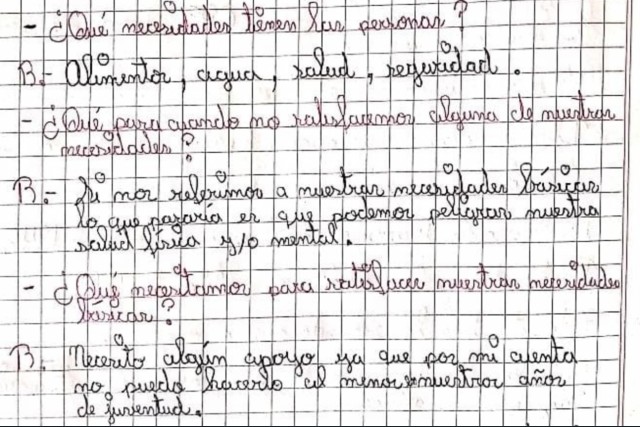 - ¿Qué necesidades tienen las personas?
B.- Alimentos, agua, salud, seguridad.
- ¿Qué pasa cuando no satisfacemos alguna de nuestras
necesidades?
B.- Si nos referimos a nuestras necesidades básicas
lo que pasaría es que podemos peligrar nuestra
salud física y/o mental.
- ¿Qué necesitamos para satisfacer nuestras necesidades
básicas?
B. Necesito algún apoyo ya que por mi cuenta
no puedo hacerlo al menos nuestros años
de juventud.